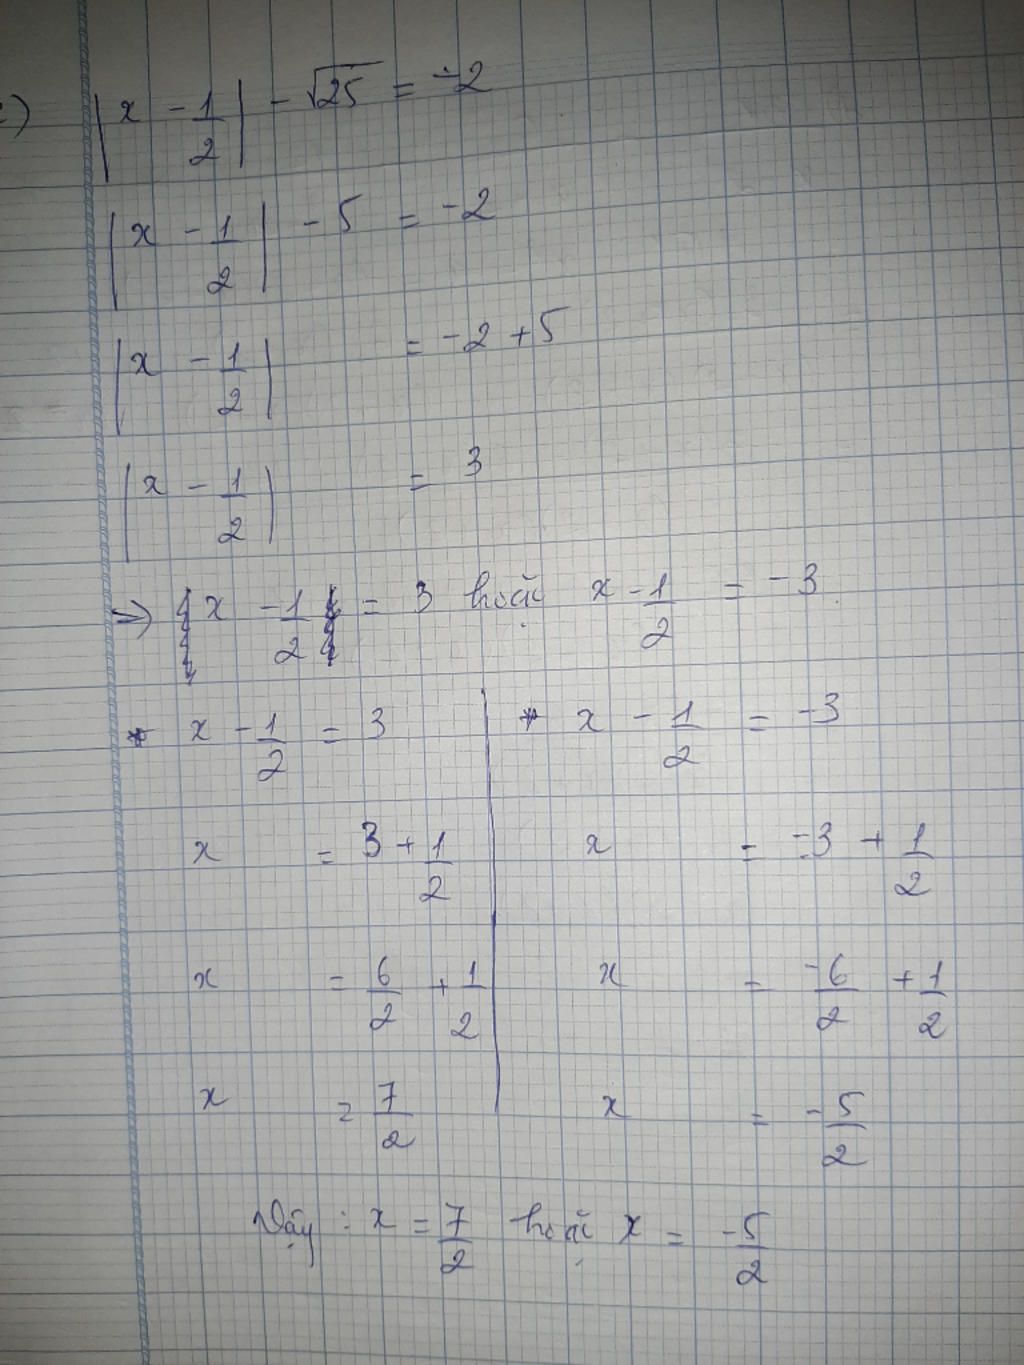 c) |x - 1/2| - √25 = -2
|x - 1/2| - 5 = -2
|x - 1/2| = -2 + 5
|x - 1/2| = 3
=> x - 1/2 = 3 hoặc x - 1/2 = -3
* x - 1/2 = 3
x = 3 + 1/2
x = 6/2 + 1/2
x = 7/2
* x - 1/2 = -3
x = -3 + 1/2
x = -6/2 + 1/2
x = -5/2
Vậy : x = 7/2 hoặc x = -5/2